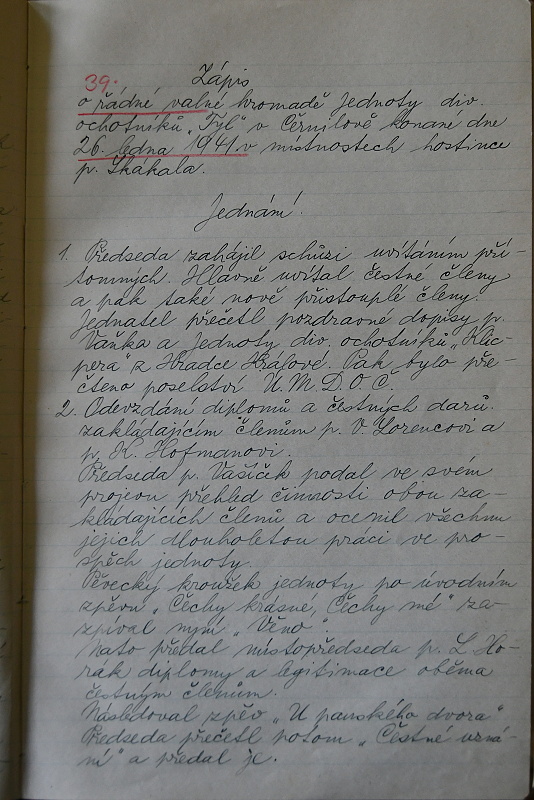 39. Zápis
o řádné valné hromadě Jednoty div.
ochotníků „Tyl" v Černilově konané dne
26. ledna 1941. v místnostech hostince
p. Skakala.
Jednání.
1. Předseda zahájil schůzi uvítáním pří-
tomných. Hlavně uvítal čestné členy
a pak také nově přistouplé členy.
Jednatel přečetl pozdravné dopisy p.
Vaňka a Jednoty div. ochotníků „Klic-
pera" z Hradce Králové. Pak bylo pře-
čteno poselství Ú.M.D.O.Č.
2. Odevzdání diplomů a čestných darů
zakládajícím členům p. V. Lorencovi a
p. K. Hofmanovi.
Předseda p. Vašíček podal ve svém
projevu přehled činnosti obou za-
kládajících členů a ocenil všechnu
jejich dlouholetou práci ve pro-
spěch jednoty.
Pěvecký kroužek jednoty po úvodním
zpěvu „Čechy krásné, Čechy mé" za-
zpíval nyní „Věno".
Nato předal místopředseda p. L. Ho-
rák diplomy a legitimace oběma
čestným členům.
Následoval zpěv „U panského dvora"
Předseda přečetl potom „Čestné uzná-
ní" a předal je.